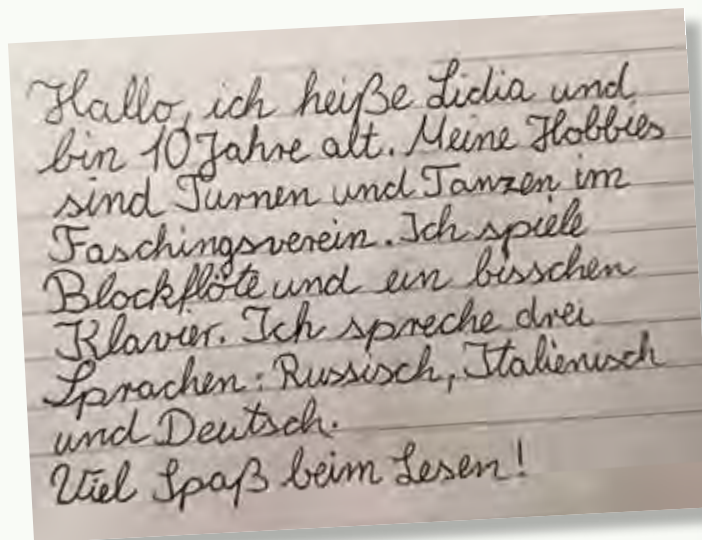 Hallo, ich heiße Lidia und
bin 10 Jahre alt. Meine Hobbies
sind Turnen und Tanzen im
Faschingsverein. Ich spiele
Blockflöte und ein bisschen
Klavier. Ich spreche drei
Sprachen: Russisch, Italienisch
und Deutsch.
Viel Spaß beim Lesen!